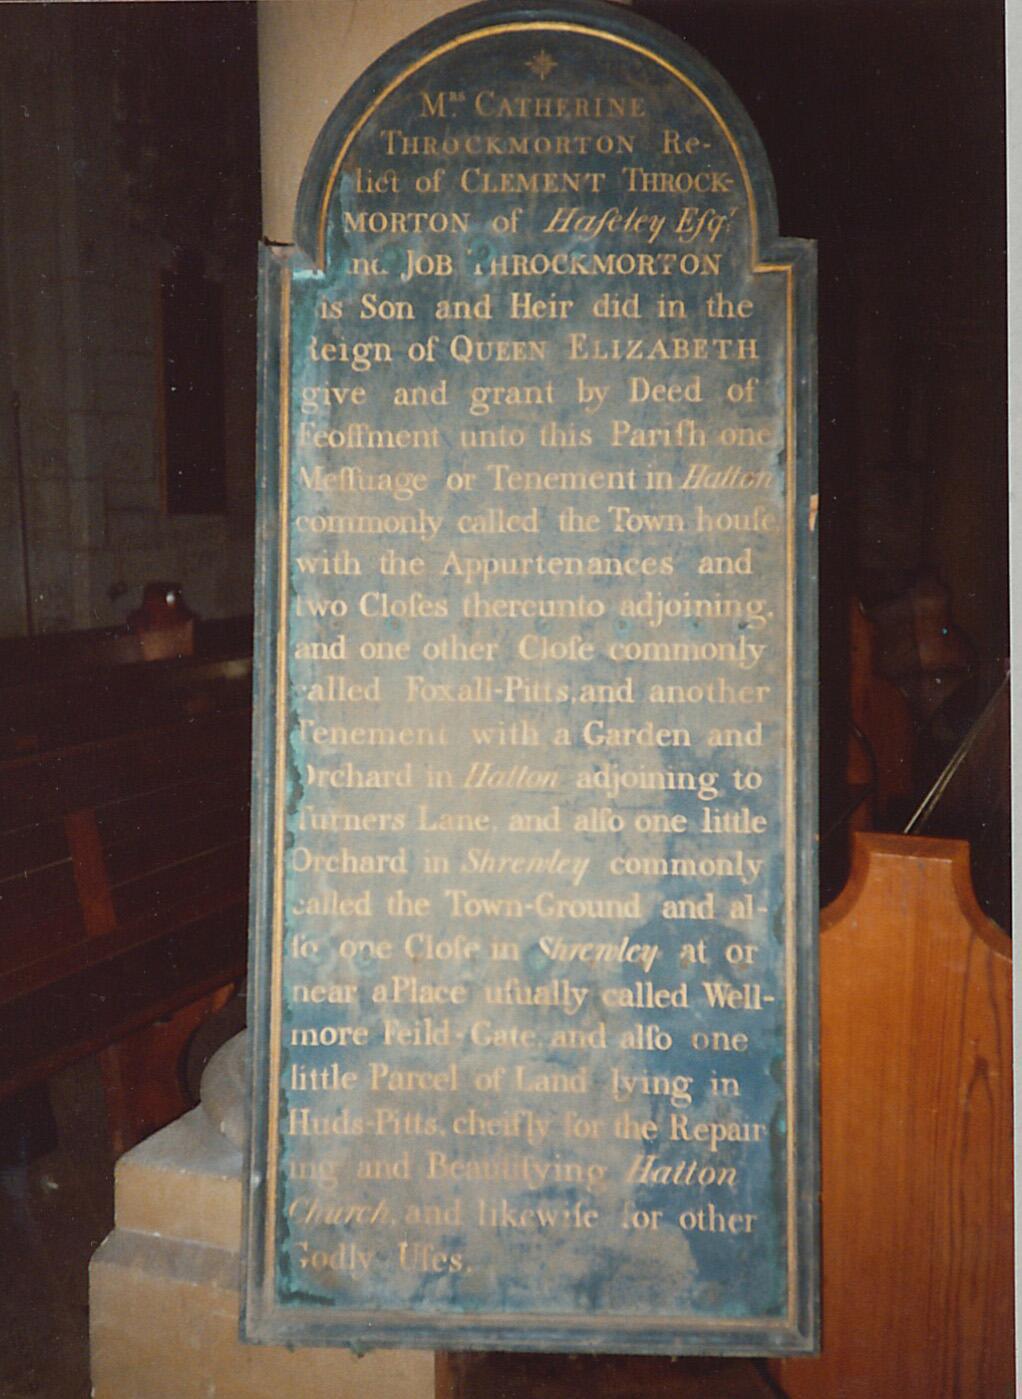 Mrs. CATHERINE
THROCKMORTON Re-
lict of CLEMENT THROCK-
MORTON of Haſeley Eſqr.
and JOB THROCKMORTON
his Son and Heir did in the
Reign of QUEEN ELIZABETH
give and grant by Deed of
Feoffment unto this Pariſh one
Meſſuage or Tenement in Hatton
commonly called the Town houſe
with the Appurtenances and
two Cloſes thereunto adjoining,
and one other Cloſe commonly
called Foxall-Pitts, and another
Tenement with a Garden and
Orchard in Hatton adjoining to
Turners Lane, and alſo one little
Orchard in Shrewley commonly
called the Town-Ground and al-
ſo one Cloſe in Shrewley at or
near a Place uſually called Well-
more Feild-Gate, and alſo one
little Parcel of Land lying in
Huds-Pitts, cheifly for the Repair
ing and Beautifying Hatton
Church, and likewiſe for other
Godly Uſes.